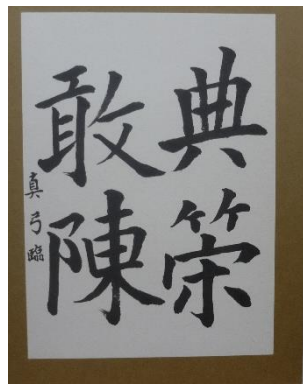 典策
敢陳
真弓臨